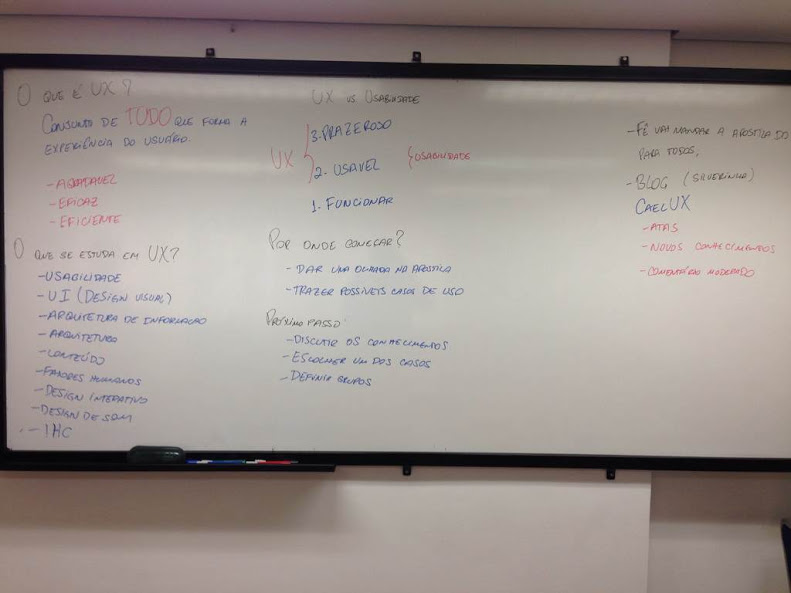 O QUE É UX?
CONJUNTO DE TUDO QUE FORMA A
EXPERIÊNCIA DO USUÁRIO.
- AGRADÁVEL
- EFICAZ
- EFICIENTE
O QUE SE ESTUDA EM UX?
- USABILIDADE
- UI (DESIGN VISUAL)
- ARQUITETURA DE INFORMAÇÃO
- ARQUITETURA
- CONTEÚDO
- FATORES HUMANOS
- DESIGN INTERATIVO
- DESIGN DE SOM
- IHC
UX VS USABILIDADE
3. PRAZEROSO
UX
2. USÁVEL
{USABILIDADE
1. FUNCIONAR
POR ONDE COMEÇAR?
- DAR UMA OLHADA NA APOSTILA
- TRAZER POSSÍVEIS CASOS DE USO
PRÓXIMO PASSO:
- DISCUTIR OS CONHECIMENTOS
- ESCOLHER UM DOS CASOS
- DEFINIR GRUPOS
- FÊ VAI MANDAR A APOSTILA DO
PARA TODOS,
- BLOG (SILVEIRINHA)
CAELUX
- ATAS
- NOVOS CONHECIMENTOS
- COMENTÁRIO MODERADO